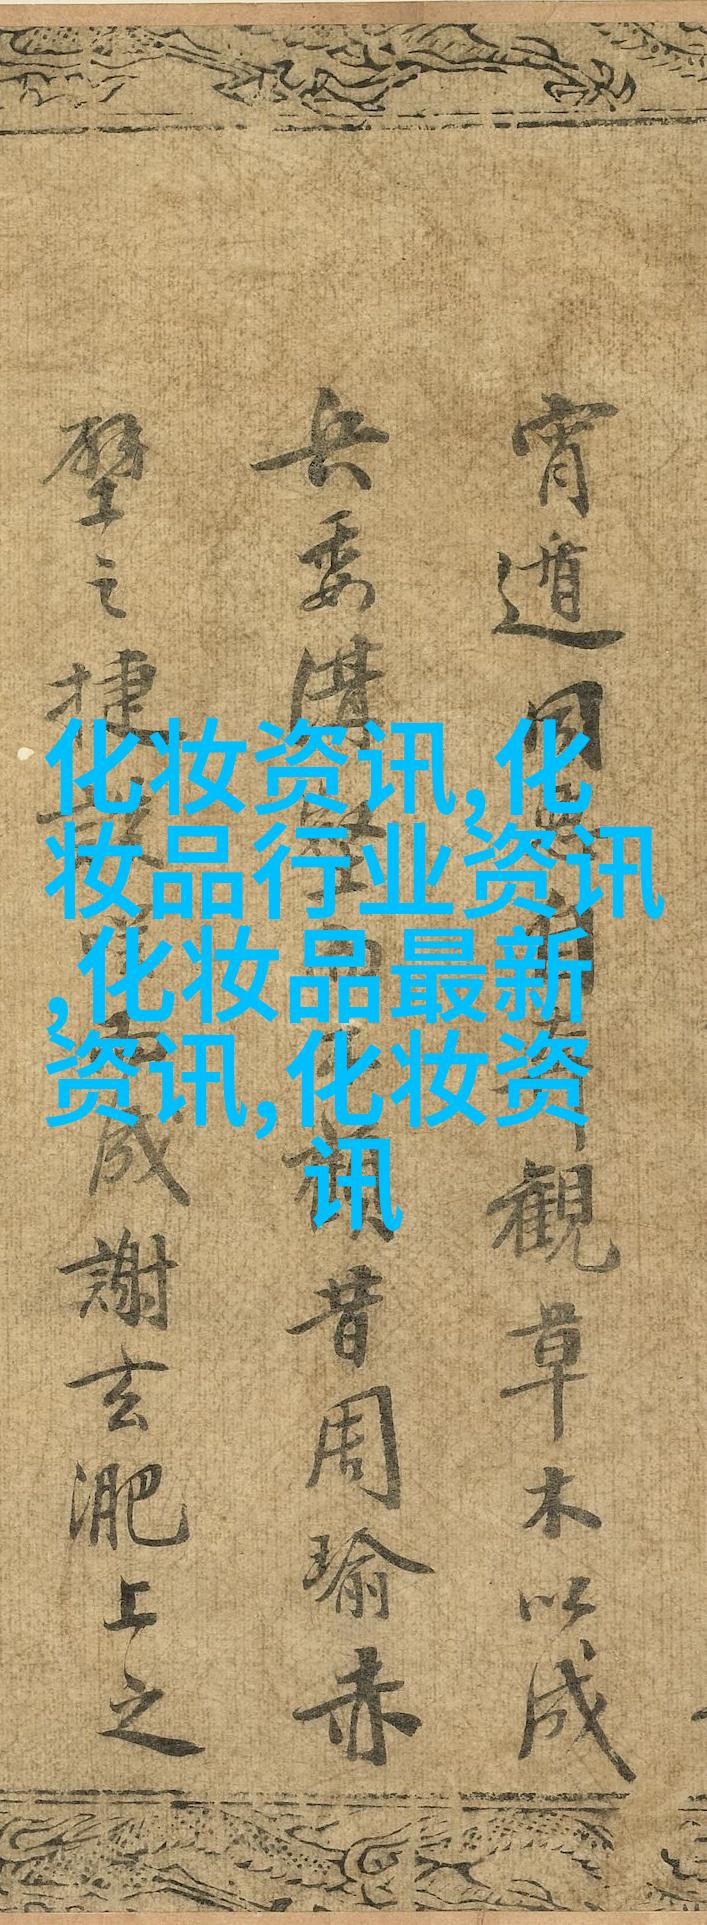 宵遁觀草木以成
兵委溝昔周瑜赤
壁之捷談成謝玄淝上之
化妆资讯,化
妆品行业资讯
,化妆品最新
资讯,化妆资
讯